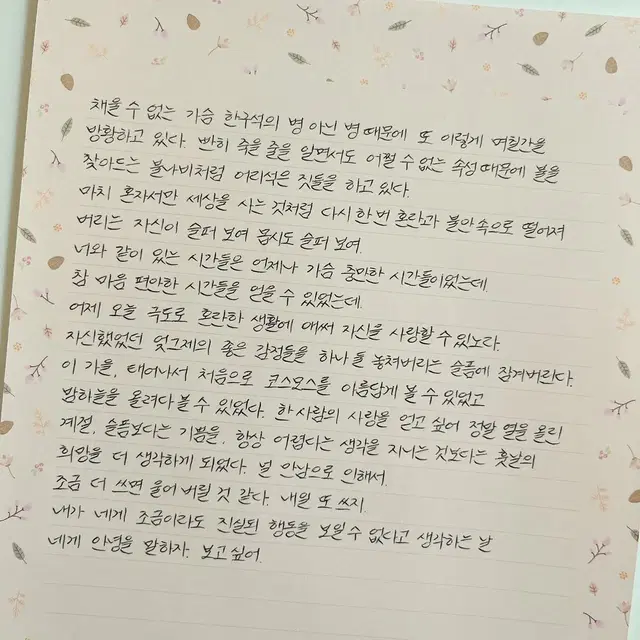 채울 수 없는 가슴 한구석의 병 아닌 병 때문에 또 이렇게 며칠간을
방황하고 있다. 빤히 죽을 줄을 알면서도 어쩔 수 없는 속성 때문에 불을
찾아드는 불나비처럼 어리석은 짓들을 하고 있다.
마치 혼자서만 세상을 사는 것처럼 다시 한번 혼란과 불안 속으로 떨어져
버리는 자신이 슬퍼 보여 몹시도 슬퍼 보여.
너와 같이 있는 시간들은 언제나 가슴 충만한 시간들이었는데.
참 마음 편안한 시간들을 얻을 수 있었는데.
어제 오늘 극도로 혼란한 생활에 애써 자신을 사랑할 수 있노라.
자신했었던 엊그제의 좋은 감정들을 하나 둘 놓쳐버리는 슬픔에 잠겨버린다.
이 가을, 태어나서 처음으로 코스모스를 아름답게 볼 수 있었고
밤하늘을 올려다 볼 수 있었다. 한 사람의 사랑을 얻고 싶어 정말 열을 올린
계절, 슬픔보다는 기쁨을, 항상 어렵다는 생각을 지니는 것보다는 훗날의
희망을 더 생각하게 되었다. 널 안남으로 인해서.
조금 더 쓰면 울어 버릴 것 같다. 내일 또 쓰지.
내가 네게 조금이라도 진실된 행동을 보일 수 없다고 생각하는 날
네게 안녕을 말하자. 보고 싶어.